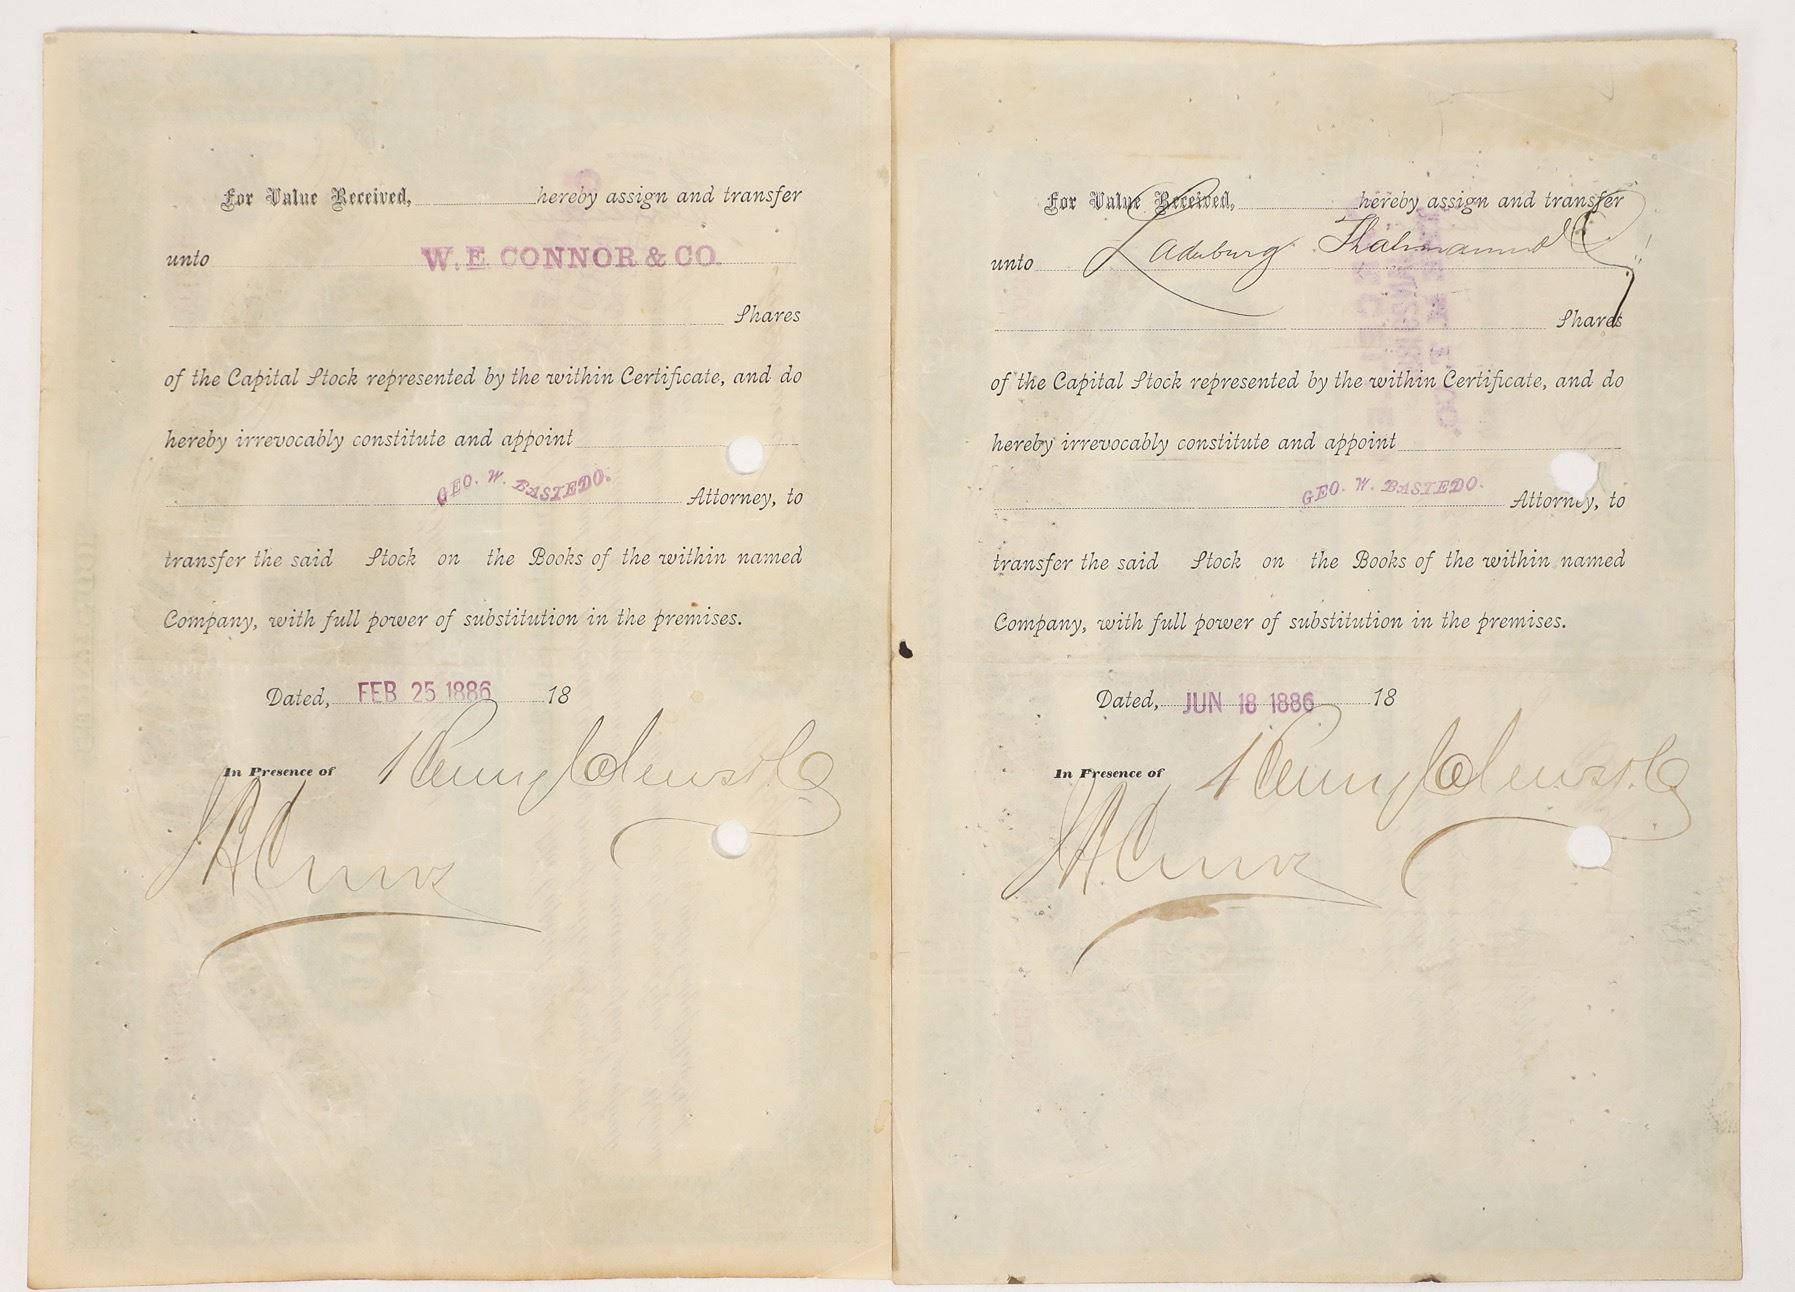 For Value Received, hereby assign and transfer
unto W. E. CONNOR & CO.
Shares
of the Capital Stock represented by the within Certificate, and do
hereby irrevocably constitute and appoint
GEO. W. BASTEDO. Attorney, to
transfer the said Stock on the Books of the within named
Company, with full power of substitution in the premises.
Dated, FEB 25 1886 18
In Presence of
For Value Received, hereby assign and transfer
unto Ladenburg Thalmann & Co
Shares
of the Capital Stock represented by the within Certificate, and do
hereby irrevocably constitute and appoint
GEO. W. BASTEDO. Attorney, to
transfer the said Stock on the Books of the within named
Company, with full power of substitution in the premises.
Dated, JUN 18 1886 18
In Presence of